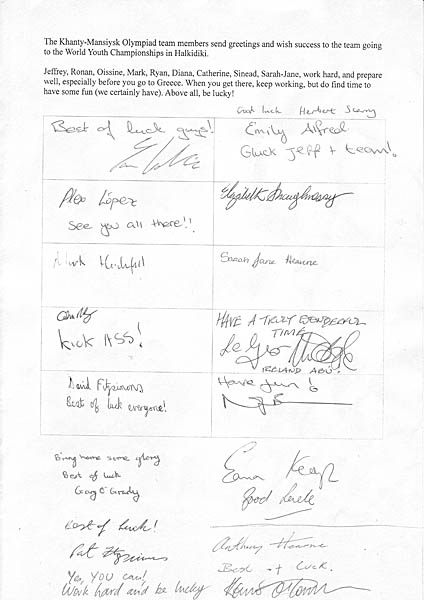 The Khanty-Mansiysk Olympiad team members send greetings and wish success to the team going
to the World Youth Championships in Halkidiki.
Jeffrey, Ronan, Oissine, Mark, Ryan, Diana, Catherine, Sinead, Sarah-Jane, work hard, and prepare
well, especially before you go to Greece. When you get there, keep working, but do find time to
have some fun (we certainly have). Above all, be lucky!
Good luck Herbert
Best of luck guys!
Emily Alfred
Gluck Jeff + team!
Alex López
See you all there!!
Elizabeth Shaughnessy
Sarah Jane Hearne
kick ASS!
HAVE A TRULY WONDERFUL
TIME
IRELAND ABÚ!
David Fitzsimons
Best of luck everyone!
Have fun!
Bring home some glory
Best of luck
Gary O'Grady
Good luck
Best of luck!
Pat Fitzsimons
Anthony Hearne
Best of luck.
Yes, YOU can!
Work hard and be lucky